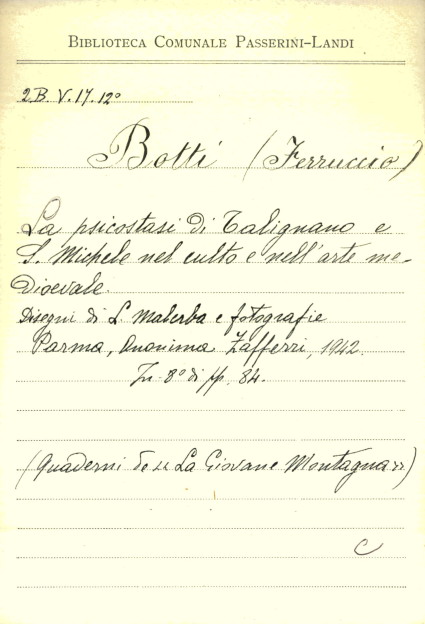 BIBLIOTECA COMUNALE PASSERINI-LANDI
2.B.V.17.12°
Botti (Ferruccio)
La psicostasi di Talignano e
S. Michele nel culto e nell'arte me-
dioevale.
Disegni di L. Malerba e fotografie
Parma, Anonima Zafferri, 1942.
In 8° di pp. 84.
(Quaderni de "La Giovane Montagna")
C